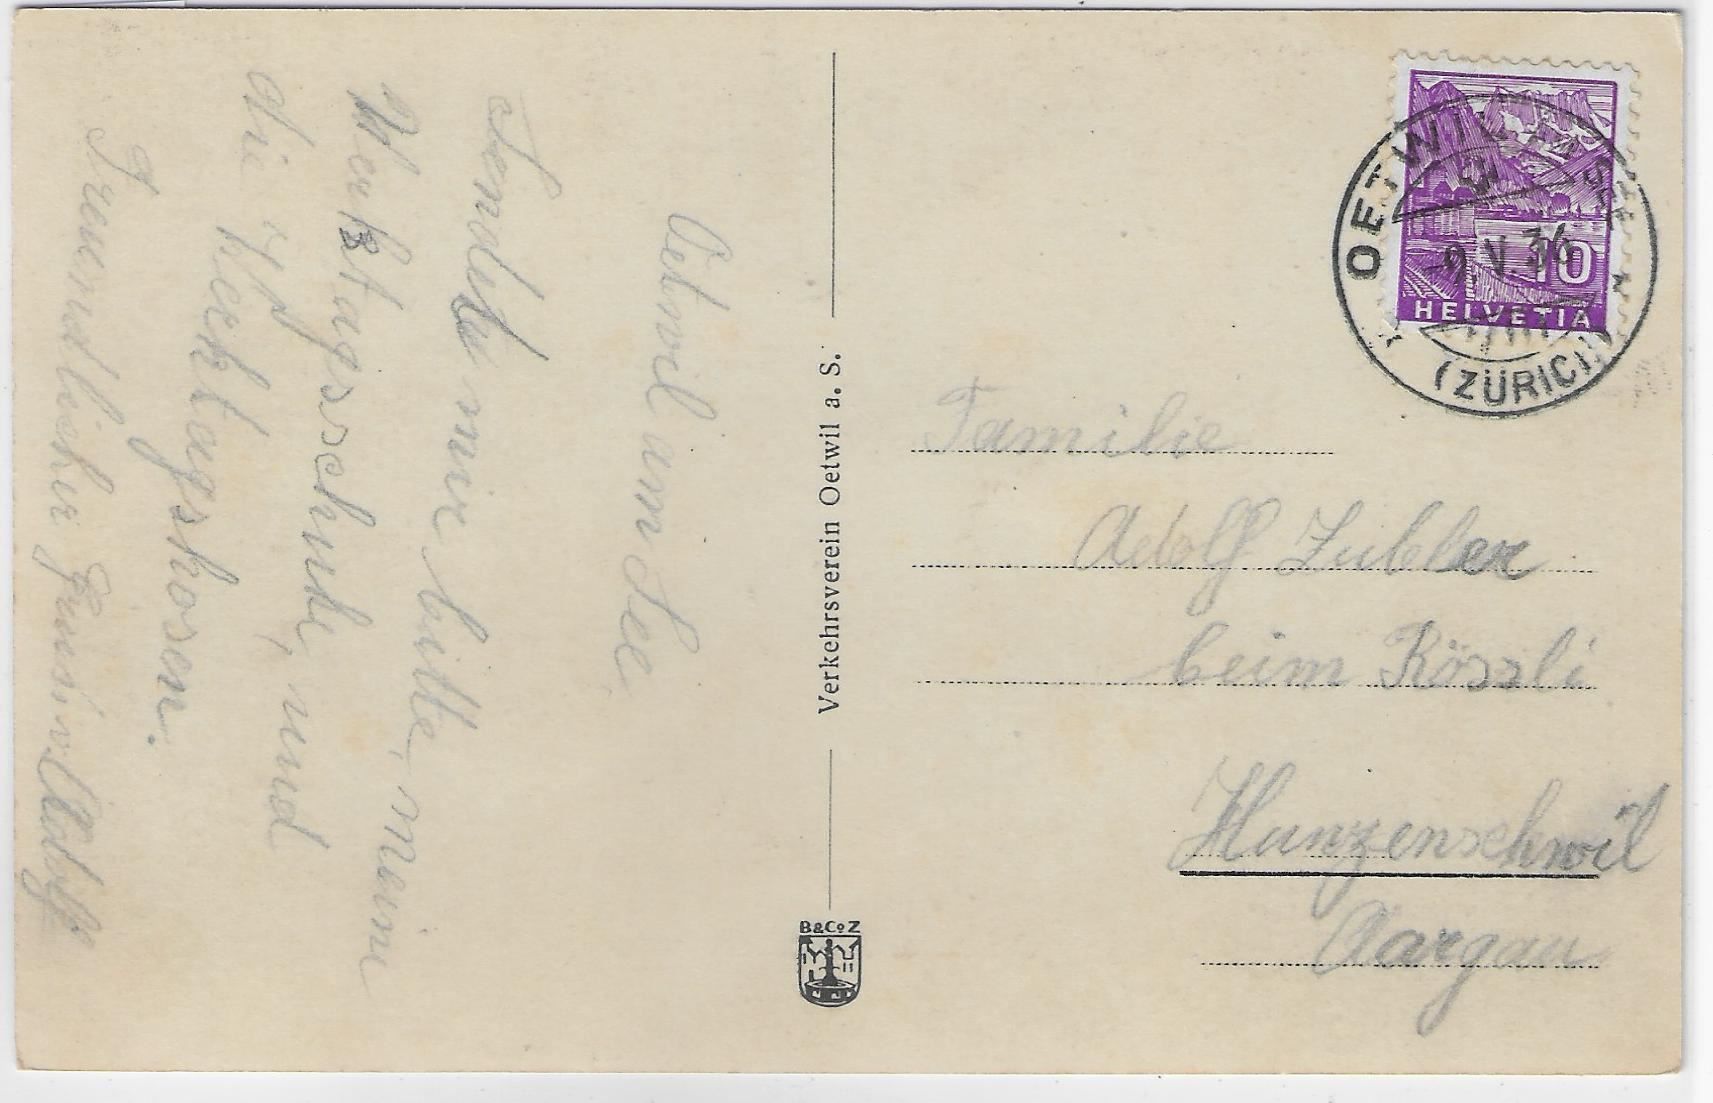 Oetwil am See,
Sendet mir bitte, meine
Werktagsschuhe, und
die Werktagshosen.
Freundlicher Gruss v. Adolf
Verkehrsverein Oetwil a. S.
B&Co Z
OETWIL
9.V.36
(ZÜRICH)
10
HELVETIA
Familie
Adolf Zubler
beim Rössli
Hunzenschwil
Aargau